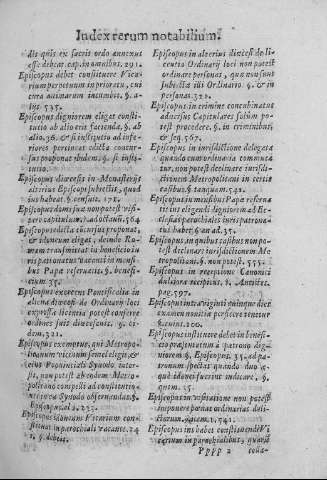 Index rerum notabilium.
dis quis ex sacris ordo annexus
esse debeat cap. in omnibus. 291.
Episcopus debet constituere Vica-
rium perpetuum in prioratu, cui
cura animarum incumbit. §.
alijs 535.
Episcopus digniorem eligat consti-
tuto ab alio eti facienda. §. ab
alio. 36. & si Episcopo ad infe-
riores pertineat edicta concur-
sus proponat ibidem. §. si insti-
tutio.
Episcopus diœcesis in Monasterijs
alterius Episcopi subiectis, quod
ius habeat. §. census. 171.
Episcopus domi suæ non potest visi-
tare capitulum. ad octauũ. 564
Episcopus edicta concursus proponat,
& idoneum eligat, deinde Ro-
mam transmittat in beneficio iu-
ris patronatus vacanti in mensi-
bus Papæ reseruatis. §. benefi-
cium 35.
Episcopus exercens Pontificalia in
aliena diœcesi de Ordinarij loci
expressa licentia potest conferre
ordines suis diœcesanis. §. or-
dem, 321.
Episcopus exemptus, qui Metropo-
litanum vicinum semel elegit, &
eius Prouinciali Synodo inter-
fuit, non potest ab eodem Metro-
politano compelli ad constitutio-
nes in ea Synodo obseruandas §.
Episcopi al 2. 233.
Episcopus idoneum Vicarium con-
stituat in parochiali vacante. 24
1. §. debeat.
Episcopus in alterius diœcesi de li-
centia Ordinarij loci non potest
ordinare personas, quæ non sunt
subiectæ illi Ordinario. §. & in
personas. 321.
Episcopus in crimine concubinatus
aduersus Capitulares solum po-
test procedere. §. in criminibus,
& seq. 562.
Episcopus in iurisdictione delegata
quando cum ordinaria commeca-
tur, non potest declinare iurisdi-
ctionem Metropolitani in certis
casibus. §. tanquam. 542.
Episcopus in mensibus Papæ reserua-
tis ius eligendi digniorem ad Ec-
clesias parochiales iuris patrona-
tus habet. §. an ad. 35.
Episcopus in quibus casibus non po-
test declinari iurisdictionem Me-
tropolitani. §. non potest. 555.
Episcopus in receptione Canonici
pag. 597.
Episcopus intra viginti quinque dies
examen non alia perficere tenetur
§. cursus. 100.
Episcopus instituere debet in benefi-
tio præsentatum à patrono dig-
niorem §. Episcopus. 35. ad pa-
tronum spectat quando duo æ-
què idonei fuerint indicare, §.
quem. 35.
Episcopus in visitatione non potest
imponere pœnas ordinarias deli-
ctorum.
Episcopus ius habet constituendi Vi-
carium in parochialibus, quarum
Pppp 2